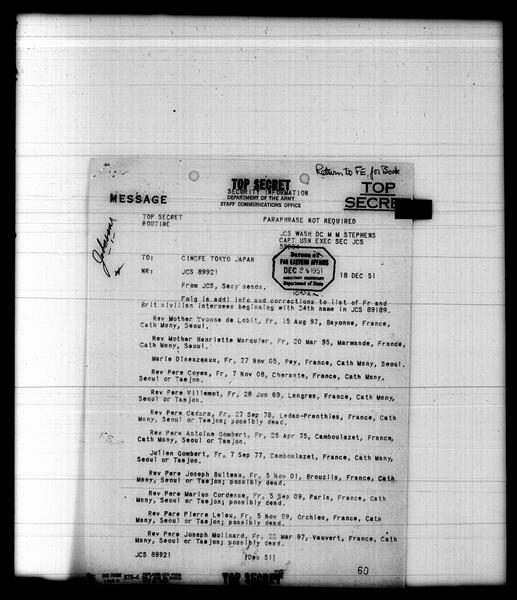 Return to FE, for Book
TOP SECRET
SECURITY INFORMATION
DEPARTMENT OF THE ARMY
STAFF COMMUNICATIONS OFFICE
TOP
SECRET
MESSAGE
TOP SECRET
ROUTINE
PARAPHRASE NOT REQUIRED
JCS WASH DC M M STEPHENS
CAPT USN EXEC SEC JCS
Bureau of
FAR EASTERN AFFAIRS
DEC 1951
ASSISTANT SECRETARY
Department of State
TO: CINCFE TOKYO JAPAN
NR: JCS 89921
18 DEC 51
From JCS, Secy sends.
Folg is addl info and corrections to list of Fr and
Brit civilian internees beginning with 24th name in JCS 89189.
Rev Mother Yvonne de Lobit, Fr, 15 Aug 97, Bayonne, France,
Cath Msny, Seoul.
Rev Mother Henriette Marquier, Fr, 20 Mar 95, Marmande, France,
Cath Msny, Seoul.
Marie Diseazeaux, Fr, 27 Nov 05, Pey, France, Cath Msny, Seoul.
Rev Pere Coyos, Fr, 7 Nov 08, Charante, France, Cath Msny,
Seoul or Taejon.
Rev Pere Villemot, Fr, 28 Jun 69, Langres, France, Cath Msny,
Seoul or Taejon.
Rev Pere Cadars, Fr, 27 Sep 78, Ledas-Pranthies, France, Cath
Msny, Seoul or Taejon; possibly dead.
Rev Pere Antoine Gombert, Fr, 25 Apr 75, Camboulazet, France,
Cath Msny, Seoul or Taejon.
Julien Gombert, Fr, 7 Sep 77, Camboulazet, France, Cath Msny,
Seoul or Taejon.
Rev Pere Joseph Bulteau, Fr, 5 Nov 01, Brouzils, France, Cath
Msny, Seoul or Taejon; possibly dead.
Rev Pere Marius Cordesse, Fr, 5 Sep 09, Paris, France, Cath
Msny, Seoul or Taejon; possibly dead.
Rev Pere Pierre Leleu, Fr, 5 Nov 09, Orchies, France, Cath
Msny, Seoul or Taejon; possibly dead.
Rev Pere Joseph Molinard, Fr, 22 Mar 97, Vauvert, France, Cath
Msny, Seoul or Taejon; possibly dead.
JCS 89921
(Dec 51)
60
375-4
TOP SECRET